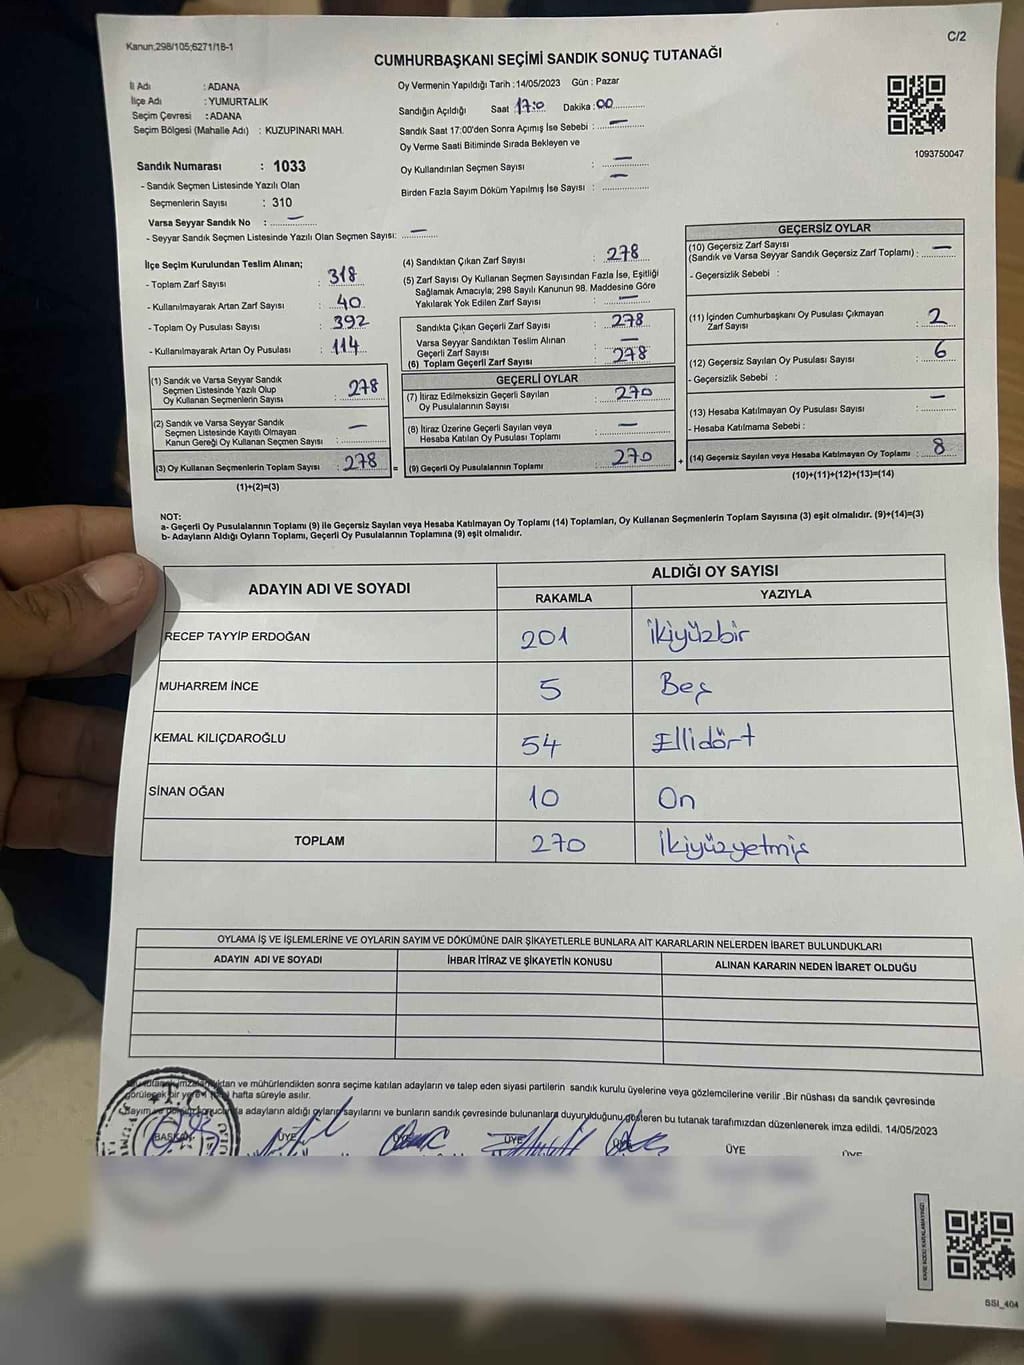 Kanun;298/105;6271/18-1
C/2
CUMHURBAŞKANI SEÇİMİ SANDIK SONUÇ TUTANAĞI
İl Adı : ADANA
İlçe Adı : YUMURTALIK
Seçim Çevresi : ADANA
Seçim Bölgesi (Mahalle Adı) : KUZUPINARI MAH.
Sandık Numarası : 1033
- Sandık Seçmen Listesinde Yazılı Olan
Seçmenlerin Sayısı : 310
Varsa Seyyar Sandık No : —
- Seyyar Sandık Seçmen Listesinde Yazılı Olan Seçmen Sayısı: —
Oy Vermenin Yapıldığı Tarih : 14/05/2023 Gün : Pazar
Sandığın Açıldığı Saat 17:0 Dakika : 00
Sandık Saat 17:00'den Sonra Açımış İse Sebebi : —
Oy Verme Saati Bitiminde Sırada Bekleyen ve
Oy Kullandırılan Seçmen Sayısı : —
Birden Fazla Sayım Döküm Yapılmış İse Sayısı : —
1093750047
İlçe Seçim Kurulundan Teslim Alınan;
- Toplam Zarf Sayısı : 318
- Kullanılmayarak Artan Zarf Sayısı : 40
- Toplam Oy Pusulası Sayısı : 392
- Kullanılmayarak Artan Oy Pusulası : 114
(1) Sandık ve Varsa Seyyar Sandık
Seçmen Listesinde Yazılı Olup
Oy Kullanan Seçmenlerin Sayısı : 278
(2) Sandık ve Varsa Seyyar Sandık
Seçmen Listesinde Kayıtlı Olmayan
Kanun Gereği Oy Kullanan Seçmen Sayısı : —
(3) Oy Kullanan Seçmenlerin Toplam Sayısı : 278
(1)+(2)=(3)
(4) Sandıktan Çıkan Zarf Sayısı : 278
(5) Zarf Sayısı Oy Kullanan Seçmen Sayısından Fazla İse, Eşitliği
Sağlamak Amacıyla; 298 Sayılı Kanunun 98. Maddesine Göre
Yakılarak Yok Edilen Zarf Sayısı : —
Sandıkta Çıkan Geçerli Zarf Sayısı : 278
Varsa Seyyar Sandıktan Teslim Alınan
Geçerli Zarf Sayısı : —
(6) Toplam Geçerli Zarf Sayısı : 278
GEÇERLİ OYLAR
(7) İtiraz Edilmeksizin Geçerli Sayılan
Oy Pusulalarının Sayısı : 270
(8) İtiraz Üzerine Geçerli Sayılan veya
Hesaba Katılan Oy Pusulası Toplamı : —
= (9) Geçerli Oy Pusulalarının Toplamı : 270
GEÇERSİZ OYLAR
(10) Geçersiz Zarf Sayısı
(Sandık ve Varsa Seyyar Sandık Geçersiz Zarf Toplamı) : —
- Geçersizlik Sebebi :
(11) İçinden Cumhurbaşkanı Oy Pusulası Çıkmayan
Zarf Sayısı : 2
(12) Geçersiz Sayılan Oy Pusulası Sayısı : 6
- Geçersizlik Sebebi :
(13) Hesaba Katılmayan Oy Pusulası Sayısı : —
- Hesaba Katılmama Sebebi :
+ (14) Geçersiz Sayılan veya Hesaba Katılmayan Oy Toplamı : 8
(10)+(11)+(12)+(13)=(14)
NOT:
a- Geçerli Oy Pusulalarının Toplamı (9) ile Geçersiz Sayılan veya Hesaba Katılmayan Oy Toplamı (14) Toplamları, Oy Kullanan Seçmenlerin Toplam Sayısına (3) eşit olmalıdır. (9)+(14)=(3)
b- Adayların Aldığı Oyların Toplamı, Geçerli Oy Pusulalarının Toplamına (9) eşit olmalıdır.
ADAYIN ADI VE SOYADI
ALDIĞI OY SAYISI
RAKAMLA YAZIYLA
RECEP TAYYİP ERDOĞAN 201 İkiyüzbir
MUHARREM İNCE 5 Beş
KEMAL KILIÇDAROĞLU 54 Ellidört
SİNAN OĞAN 10 On
TOPLAM 270 İkiyüzyetmiş
OYLAMA İŞ VE İŞLEMLERİNE VE OYLARIN SAYIM VE DÖKÜMÜNE DAİR ŞİKAYETLERLE BUNLARA AİT KARARLARIN NELERDEN İBARET BULUNDUKLARI
ADAYIN ADI VE SOYADI İHBAR İTİRAZ VE ŞİKAYETİN KONUSU ALINAN KARARIN NEDEN İBARET OLDUĞU
ve mühürlendikten sonra seçime katılan adayların ve talep eden siyasi partilerin sandık kurulu üyelerine veya gözlemcilerine verilir .Bir nüshası da sandık çevresinde
görülecek bir yere hafta süreyle asılır.
adayların aldığı oyların sayılarını ve bunların sandık çevresinde bulunanlara duyurulduğunu gösteren bu tutanak tarafımızdan düzenlenerek imza edildi. 14/05/2023
BAŞKAN ÜYE ÜYE ÜYE ÜYE
SSI_404